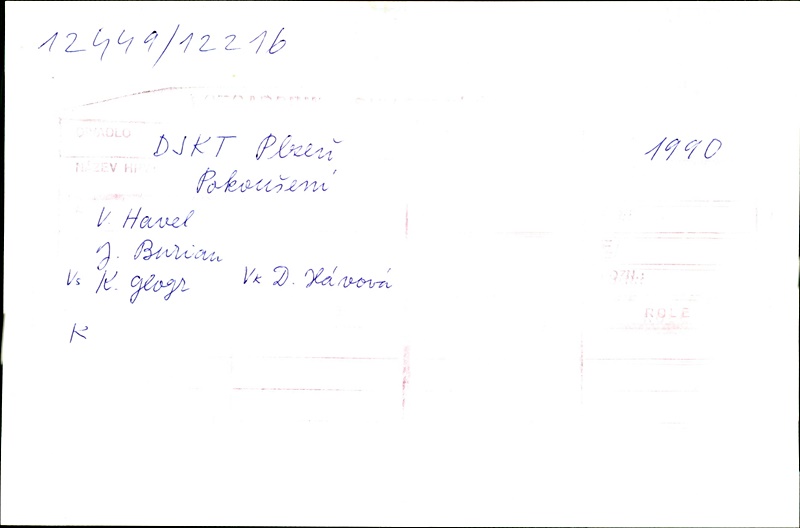 12449/12216
DIVADLO
DJKT Plzeň 1990
NÁZEV
Pokoušení
V. Havel
J. Burian
Vs K. Glogr Vk D. Hávová
ROLE
K